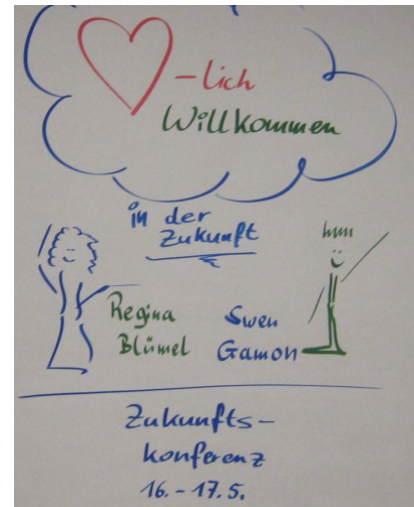 -lich
Willkommen
in der
Zukunft
Regina
Blümel
Swen
Gamon
Zukunfts-
konferenz
16.-17.5.